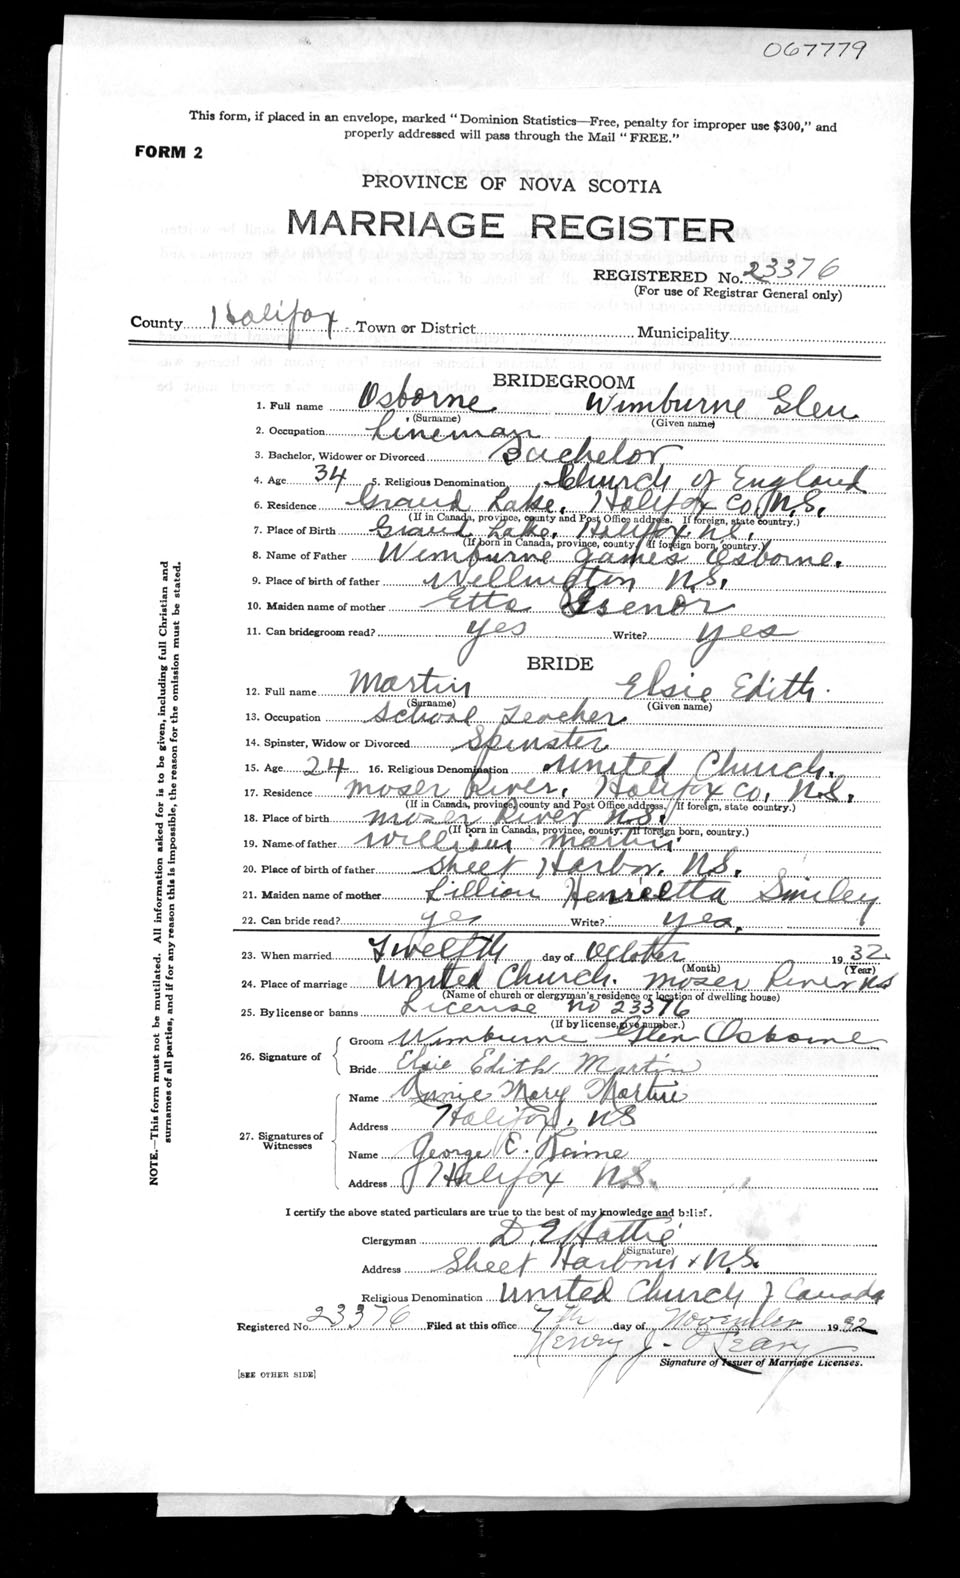 067779
This form, if placed in an envelope, marked "Dominion Statistics—Free, penalty for improper use $300," and
properly addressed will pass through the Mail "FREE."
FORM 2
PROVINCE OF NOVA SCOTIA
MARRIAGE REGISTER
REGISTERED No. 23376
(For use of Registrar General only)
County Halifax Town or District Municipality
BRIDEGROOM
1. Full name Osborne Wimburne Glen
(Surname) (Given name)
2. Occupation Lineman
3. Bachelor, Widower or Divorced Bachelor
4. Age 34 5. Religious Denomination Church of England
6. Residence Grand Lake, Halifax Co, N.S.
(If in Canada, province, county and Post Office address. If foreign, state country.)
7. Place of Birth Grand Lake, Halifax
(If born in Canada, province, county. If foreign born, country.)
8. Name of Father Wimburne James Osborne.
9. Place of birth of father Wellington N.S.
10. Maiden name of mother Etta
11. Can bridegroom read? yes Write? yes
BRIDE
12. Full name Martin Elsie Edith.
(Surname) (Given name)
13. Occupation School Teacher
14. Spinster, Widow or Divorced Spinster
15. Age 24 16. Religious Denomination United Church.
17. Residence Moser River, Halifax Co, N.S.
(If in Canada, province, county and Post Office address. If foreign, state country.)
18. Place of birth Moser River N.S.
(If born in Canada, province, county. If foreign born, country.)
19. Name of father William Martin
20. Place of birth of father Sheet Harbor. N.S.
21. Maiden name of mother Lillian Henrietta Smiley
22. Can bride read? yes Write? yes.
23. When married Twelfth day of October 1932.
(Month) (Year)
24. Place of marriage United Church. Moser River NS
(Name of church or clergyman's residence or location of dwelling house)
25. By license or banns License No 23376
(If by license, give number.)
26. Signature of Groom Wimburne Glen Osborne
Bride Elsie Edith Martin
27. Signatures of Witnesses
Name Annie Mary Martin
Address Halifax, NS
Name George E.
Address Halifax N.S.
I certify the above stated particulars are true to the best of my knowledge and belief.
Clergyman D. E. Hattie
(Signature)
Address Sheet Harbour, N.S.
Religious Denomination United Church of Canada
Registered No. 23376 Filed at this office 7th day of November 1932
Henry J. O'Leary
Signature of Issuer of Marriage Licenses.
[SEE OTHER SIDE]
NOTE.—This form must not be mutilated. All information asked for is to be given, including full Christian and
surnames of all parties, and if for any reason this is impossible, the reason for the omission must be stated.